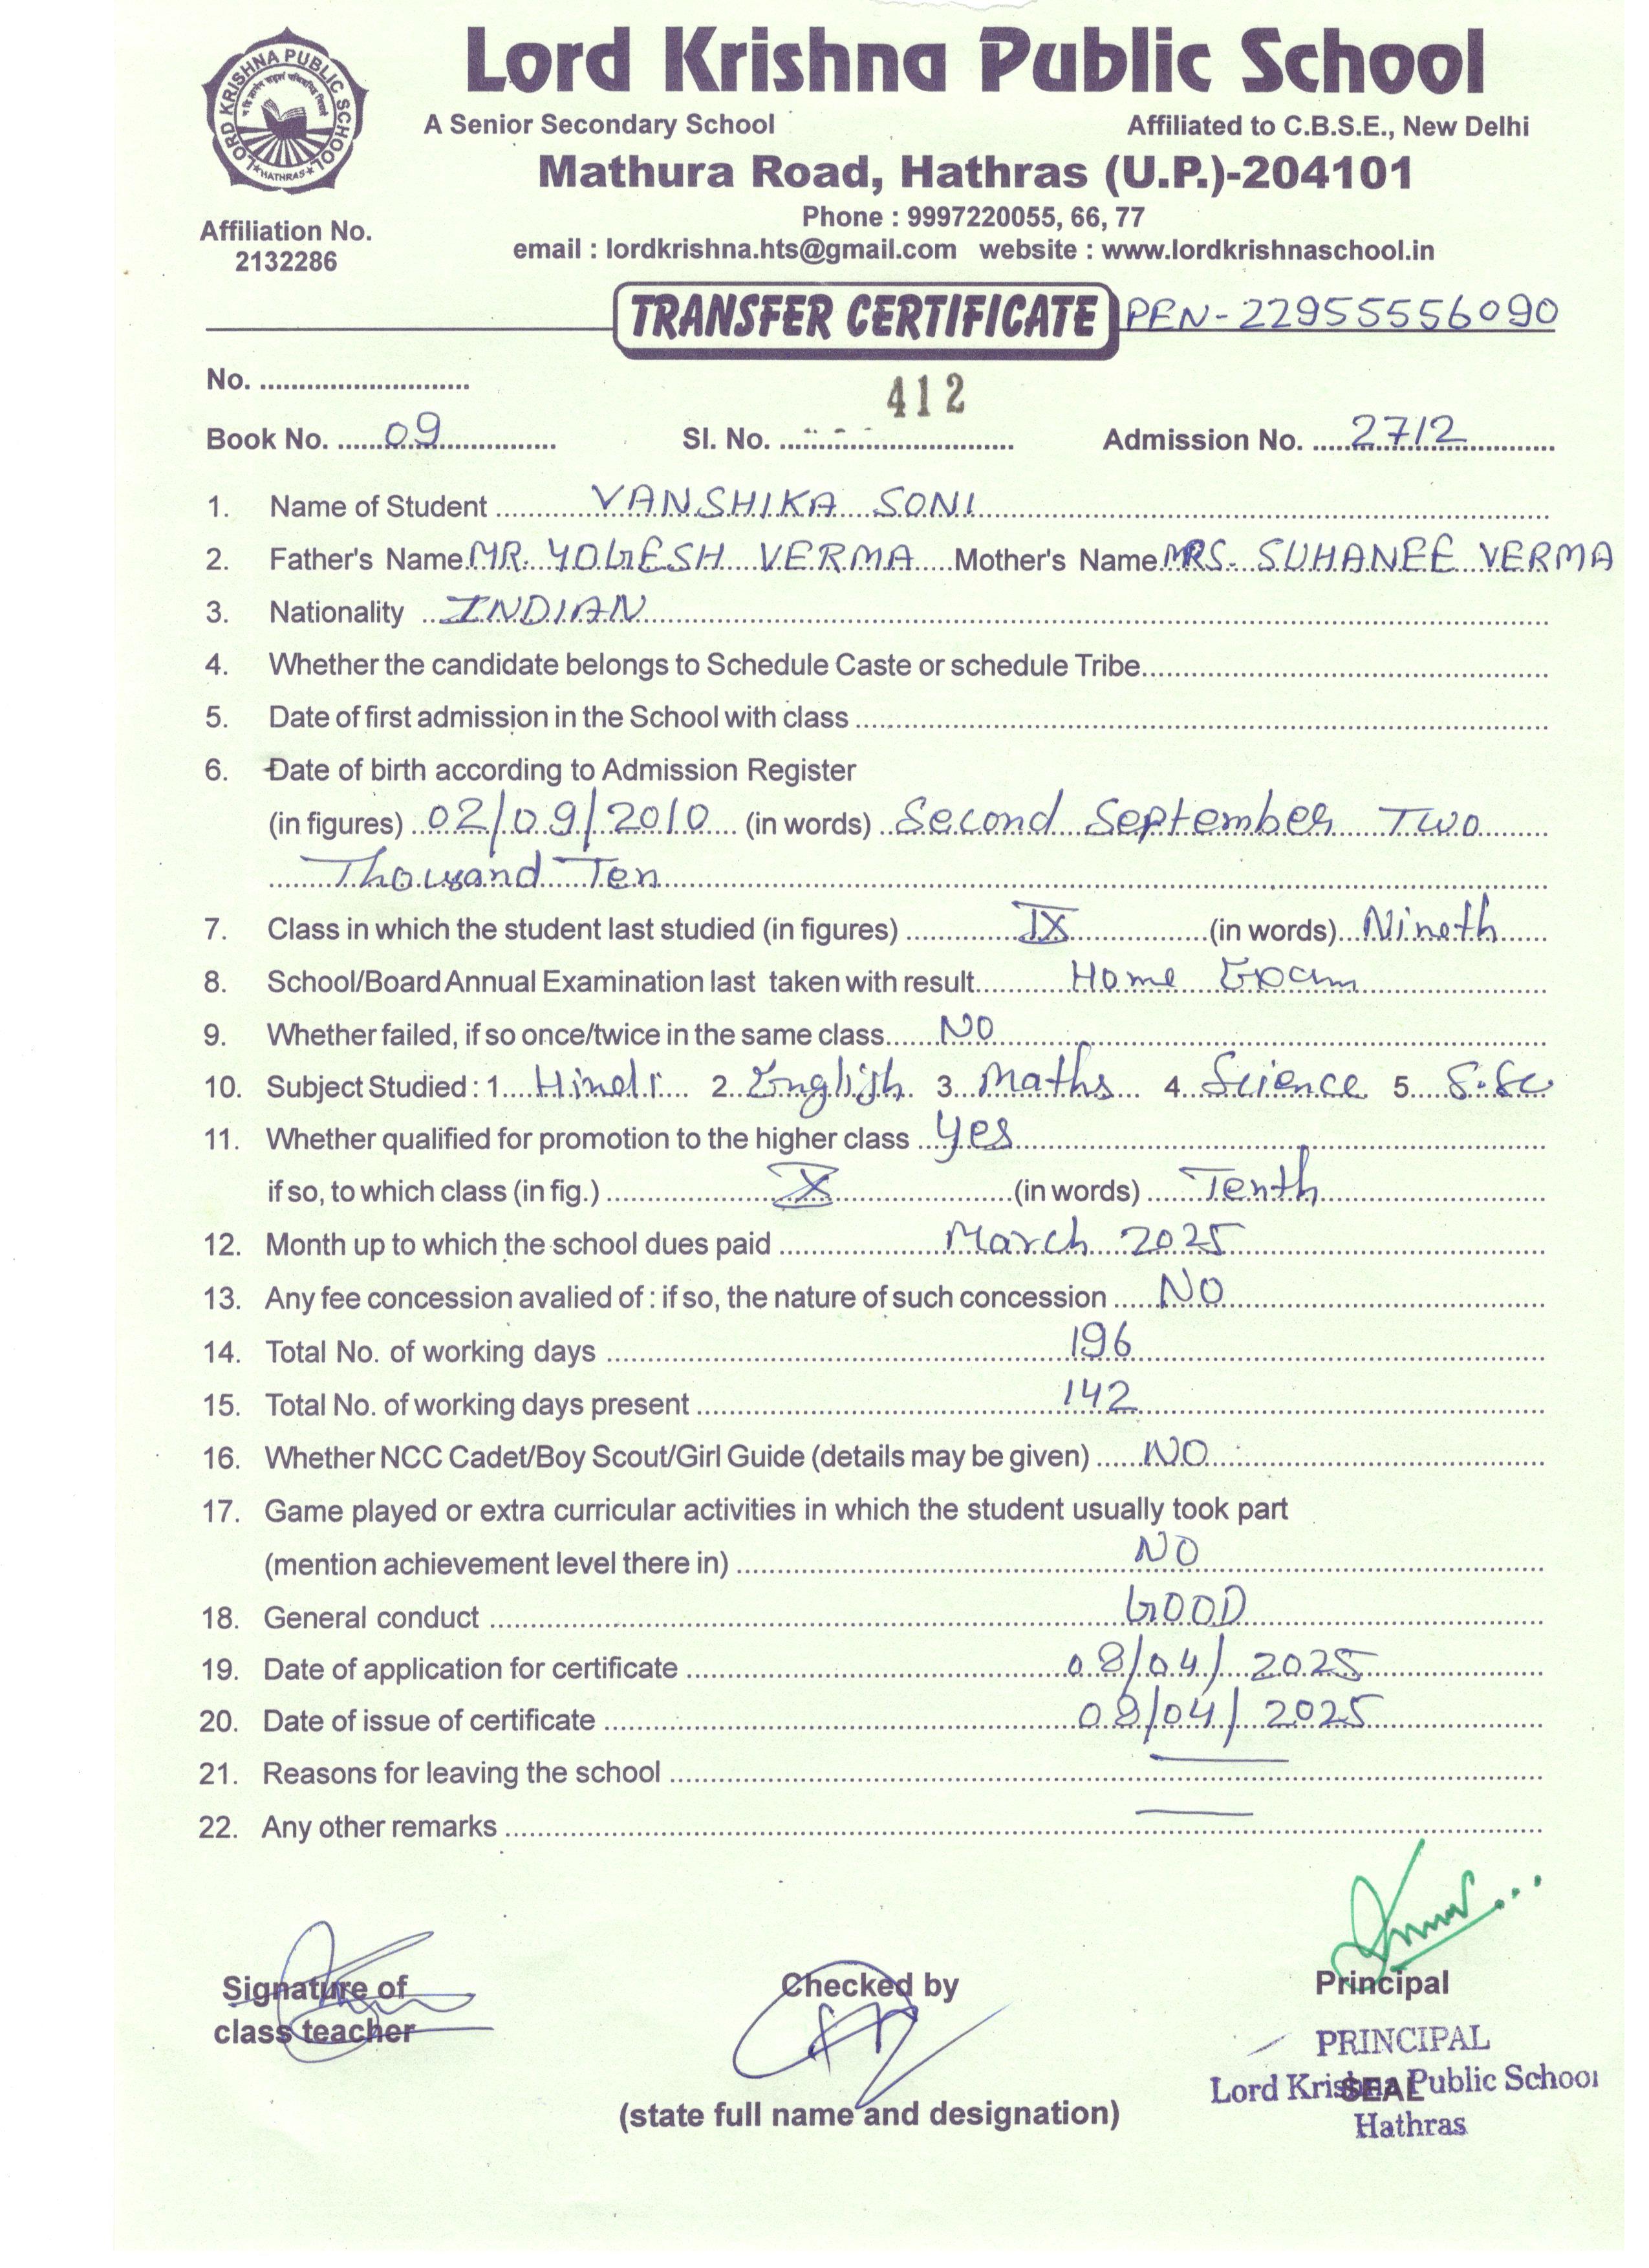 LORD KRISHNA PUBLIC SCHOOL
★ HATHRAS ★
Lord Krishna Public School
A Senior Secondary School Affiliated to C.B.S.E., New Delhi
Mathura Road, Hathras (U.P.)-204101
Phone : 9997220055, 66, 77
Affiliation No.
2132286
email : lordkrishna.hts@gmail.com website : www.lordkrishnaschool.in
TRANSFER CERTIFICATE PEN-22955556090
No. ...........................
Book No. ......09............... Sl. No. 412 Admission No. .....2712............
1. Name of Student ............VANSHIKA SONI............
2. Father's Name MR. YOGESH VERMA Mother's Name MRS. SUHANEE VERMA
3. Nationality ..INDIAN............
4. Whether the candidate belongs to Schedule Caste or schedule Tribe............
5. Date of first admission in the School with class ............
6. Date of birth according to Admission Register
(in figures) ..02/09/2010.... (in words) ..Second September Two
Thousand Ten
7. Class in which the student last studied (in figures) ............IX............(in words)...Nineth......
8. School/Board Annual Examination last taken with result............Home Exam............
9. Whether failed, if so once/twice in the same class......NO............
10. Subject Studied : 1....Hindi.... 2..English. 3...Maths... 4..Science. 5.....S.Sc
11. Whether qualified for promotion to the higher class ..yes............
if so, to which class (in fig.) ............X............(in words) ....Tenth............
12. Month up to which the school dues paid ............March 2025............
13. Any fee concession avalied of : if so, the nature of such concession ......NO............
14. Total No. of working days ............196............
15. Total No. of working days present ............142............
16. Whether NCC Cadet/Boy Scout/Girl Guide (details may be given) ......NO............
17. Game played or extra curricular activities in which the student usually took part
(mention achievement level there in) ............NO............
18. General conduct ............GOOD............
19. Date of application for certificate ............08/04/2025............
20. Date of issue of certificate ............08/04/2025............
21. Reasons for leaving the school ............
22. Any other remarks ............
Signature of
class teacher
Checked by
(state full name and designation)
Principal
PRINCIPAL
Lord Krishna Public School
SEAL
Hathras